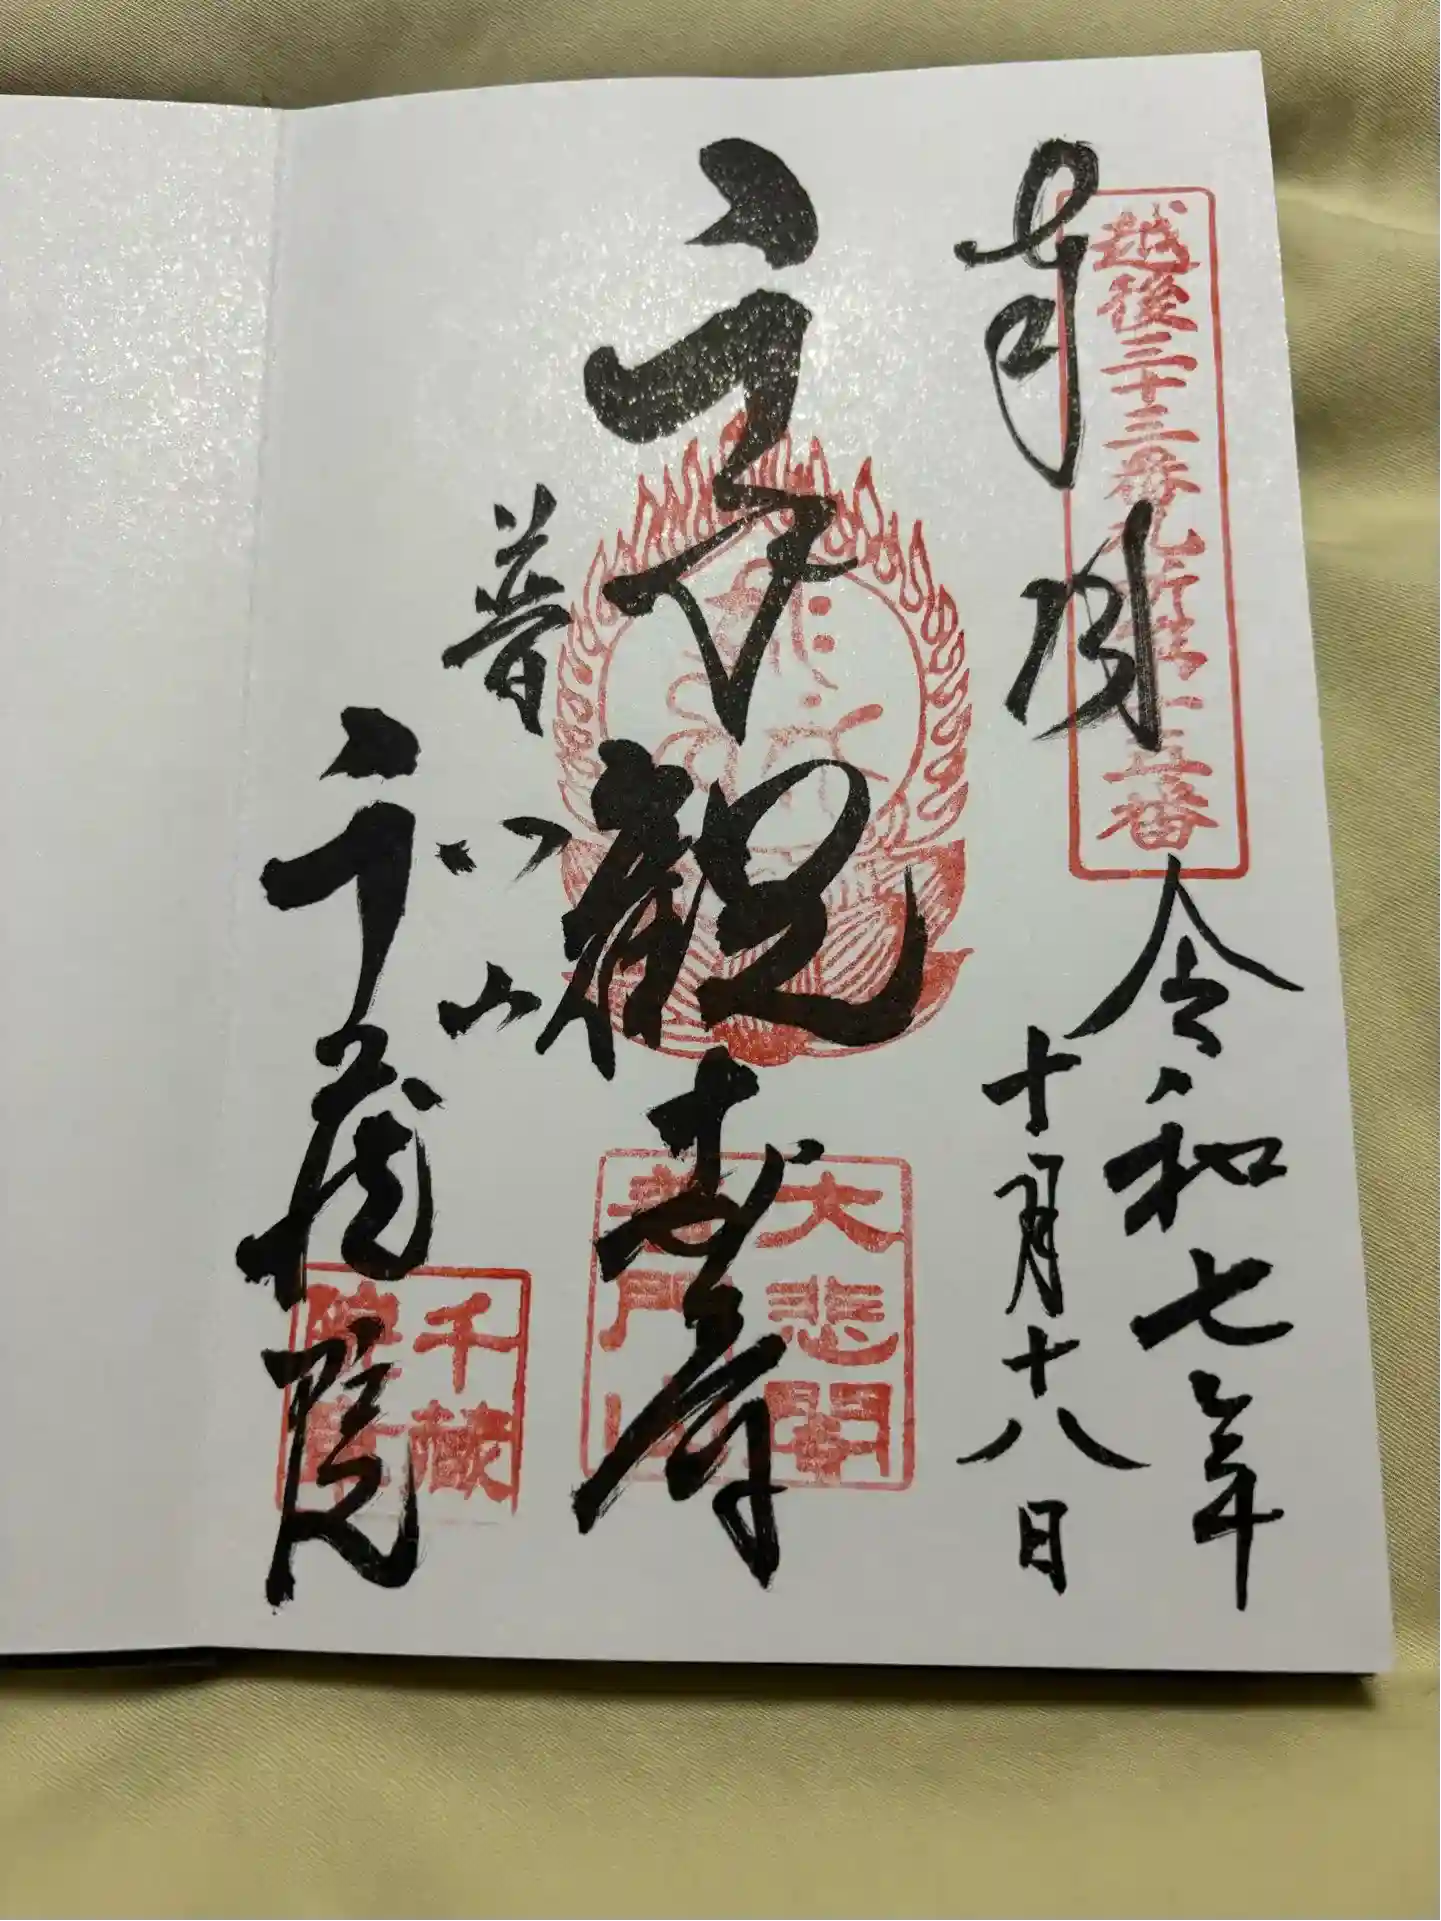 奉拝
越後三十三番札所第十五番
令和七年
十月十八日
千手観世音
大悲閣
普門山
普門山
千蔵院
千蔵